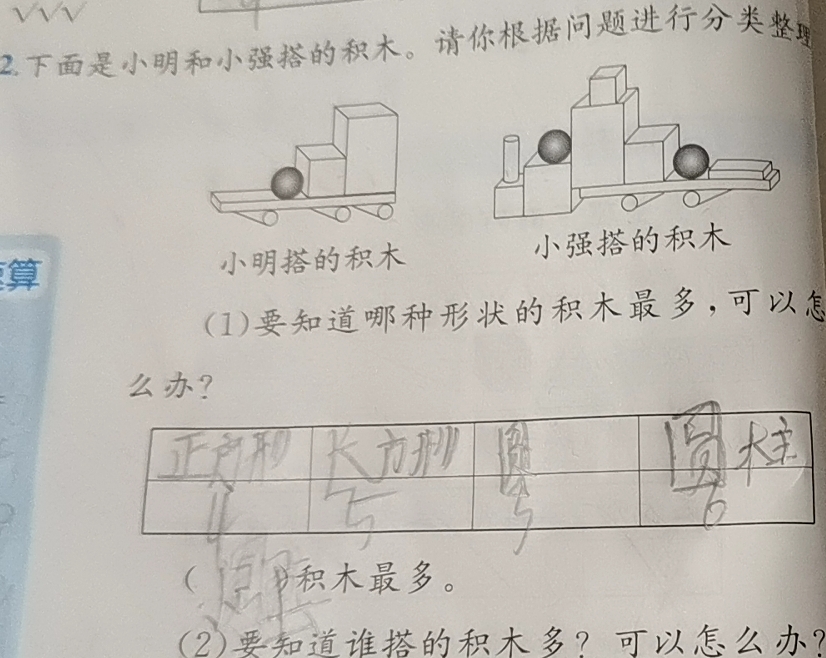 √√√
2.下面是小明和小强搭的积木。请你根据问题进行分类整理
小明搭的积木
小强搭的积木
算
(1)要知道哪种形状的积木最多，可以怎
么办？
正方形 长方形 圆 圆柱
4 5 3 6
( )积木最多。
(2)要知道谁搭的积木多？可以怎么办？